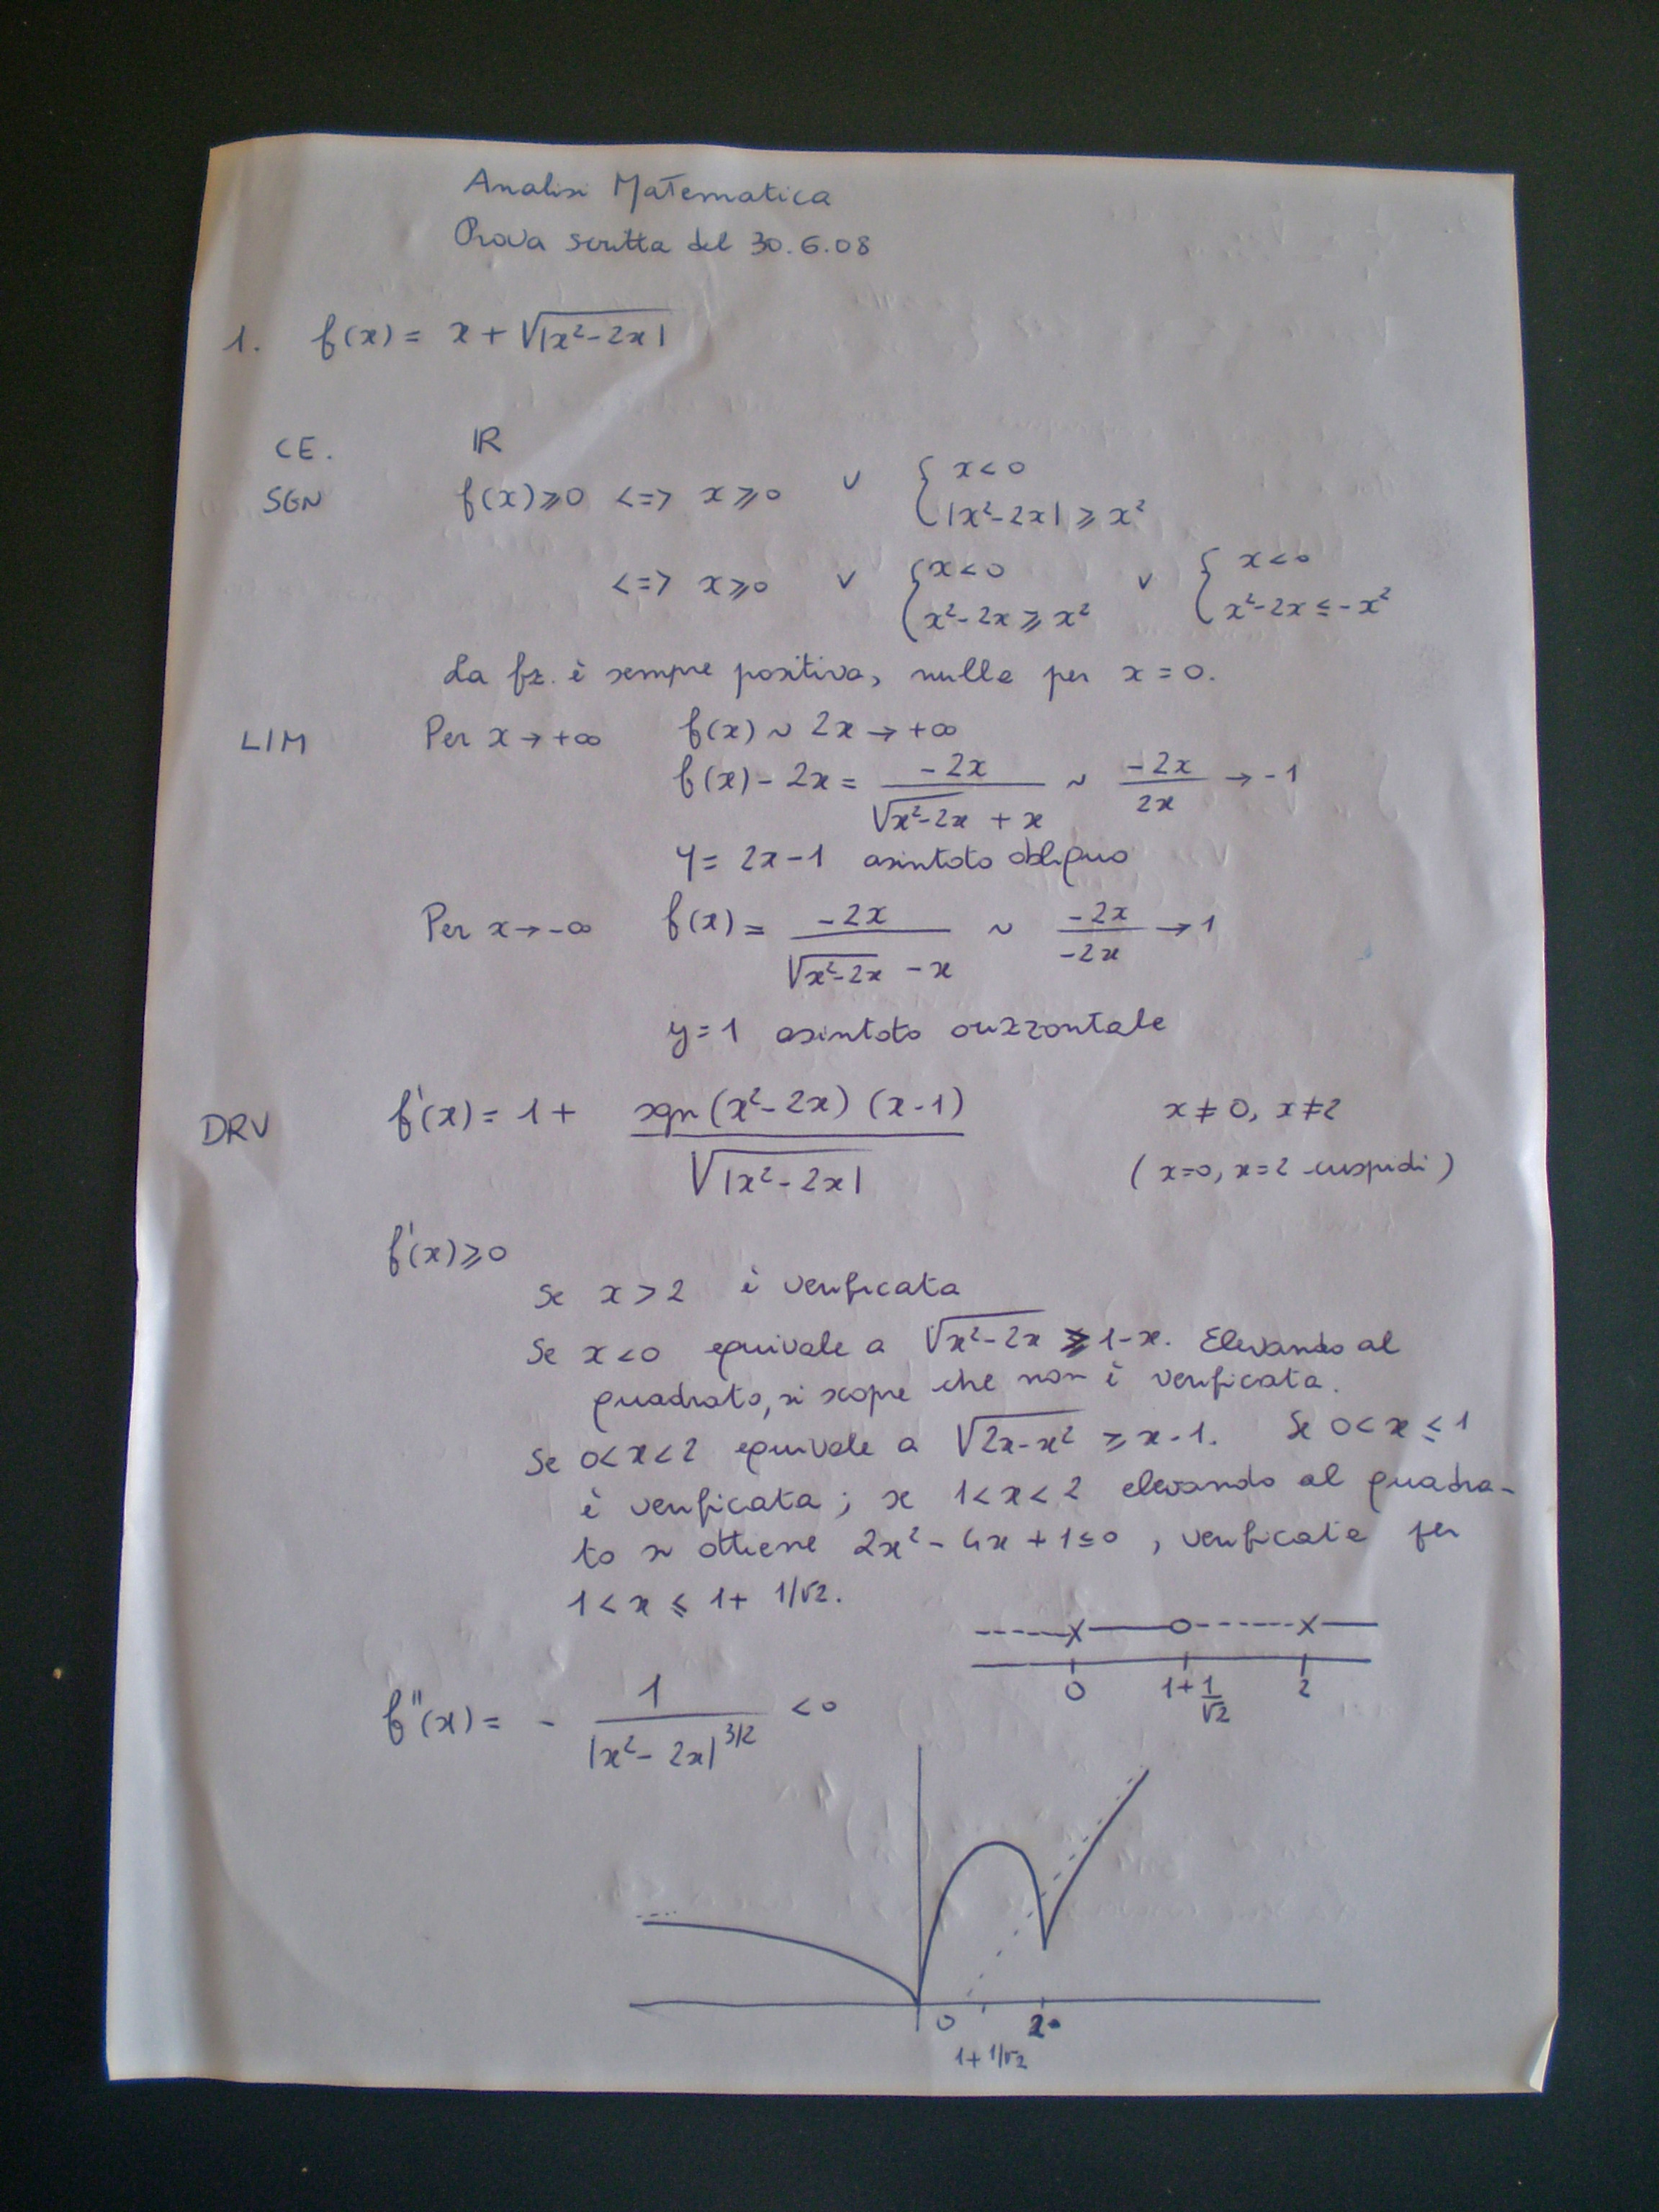 Analisi Matematica
Prova scritta del 30.6.08
1. f(x) = x + √|x²-2x|
CE. ℝ
SGN f(x) ≥ 0 <=> x ≥ 0 ∨ { x < 0
|x²-2x| ≥ x²
<=> x ≥ 0 ∨ { x < 0 ∨ { x < 0
x²-2x ≥ x² x²-2x ≤ -x²
La fz. è sempre positiva, nulla per x = 0.
LIM Per x → +∞ f(x) ~ 2x → +∞
f(x) - 2x = -2x / (√x²-2x + x) ~ -2x / 2x → -1
y = 2x-1 asintoto obliquo
Per x → -∞ f(x) = -2x / (√x²-2x - x) ~ -2x / -2x → 1
y = 1 asintoto orizzontale
DRV f'(x) = 1 + sgn(x²-2x) (x-1) / √|x²-2x| x ≠ 0, x ≠ 2
(x=0, x=2 cuspidi)
f'(x) ≥ 0
Se x > 2 è verificata
Se x < 0 equivale a √x²-2x ≥ 1-x. Elevando al
quadrato, si scopre che non è verificata.
Se 0 < x < 2 equivale a √2x-x² ≥ x-1. Se 0 < x ≤ 1
è verificata; se 1 < x < 2 elevando al quadra-
to si ottiene 2x² - 4x + 1 ≤ 0, verificata per
1 < x ≤ 1 + 1/√2.
0 1 + 1/√2 2
f''(x) = - 1 / |x²-2x|^3/2 < 0
0 2
1 + 1/√2